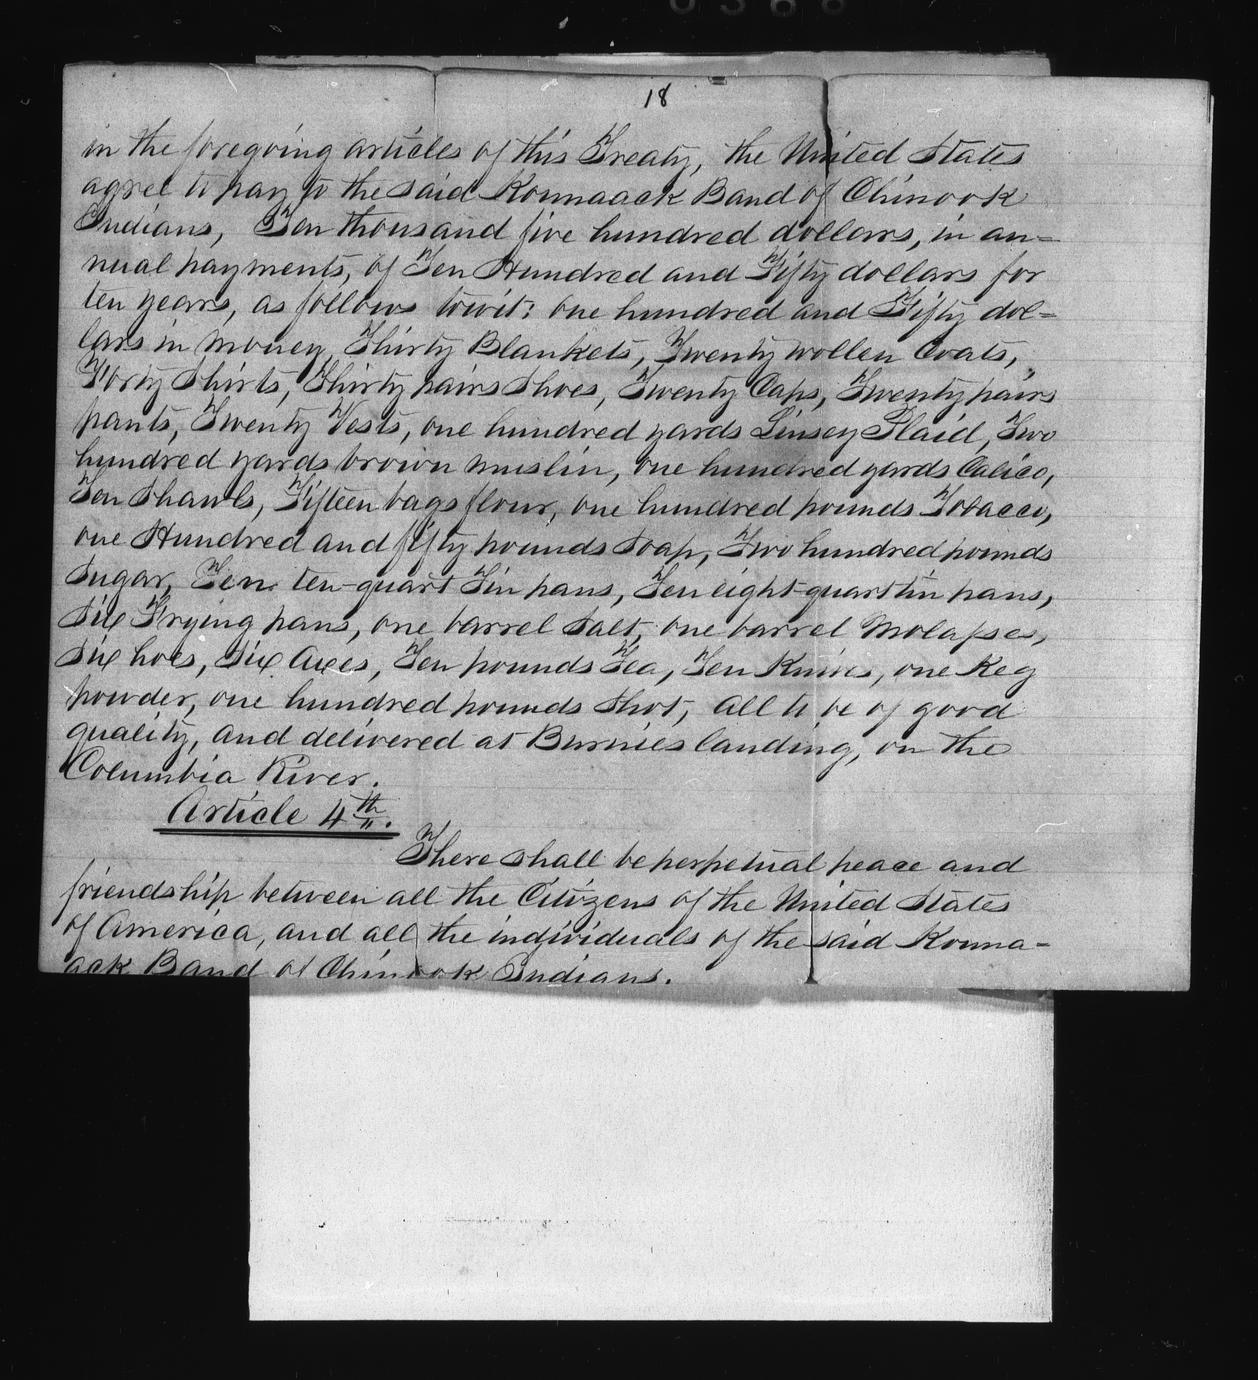 18
in the foregoing articles of this Treaty, the United States
agree to pay to the said Konnaack Band of Chinook
Indians, Ten thousand five hundred dollars, in an-
nual payments, of Ten Hundred and Fifty dollars for
ten years, as follows towit: one hundred and Fifty dol-
lars in money, Thirty Blankets, Twenty wollen Coats,
Forty Shirts, Thirty pairs Shoes, Twenty Caps, Twenty pairs
pants, Twenty Vests, one hundred yards Linsey Plaid, Two
hundred yards brown muslin, one hundred yards Calico,
Ten Shawls, Fifteen bags flour, one hundred pounds Tobacco,
one Hundred and fifty pounds Soap, Two hundred pounds
Sugar, Ten ten-quart Tin pans, Ten eight-quart tin pans,
Six Frying pans, one barrel Salt, one barrel Molasses,
Six hoes, Six Axes, Ten pounds Tea, Ten Knives, one Keg
powder, one hundred pounds Shot, all to be of good
quality, and delivered at Burnies landing, on the
Columbia River.
Article 4th.
There shall be perpetual peace and
friendship between all the Citizens of the United States
of America, and all the individuals of the said Konna-
ack Band of Chinook Indians.